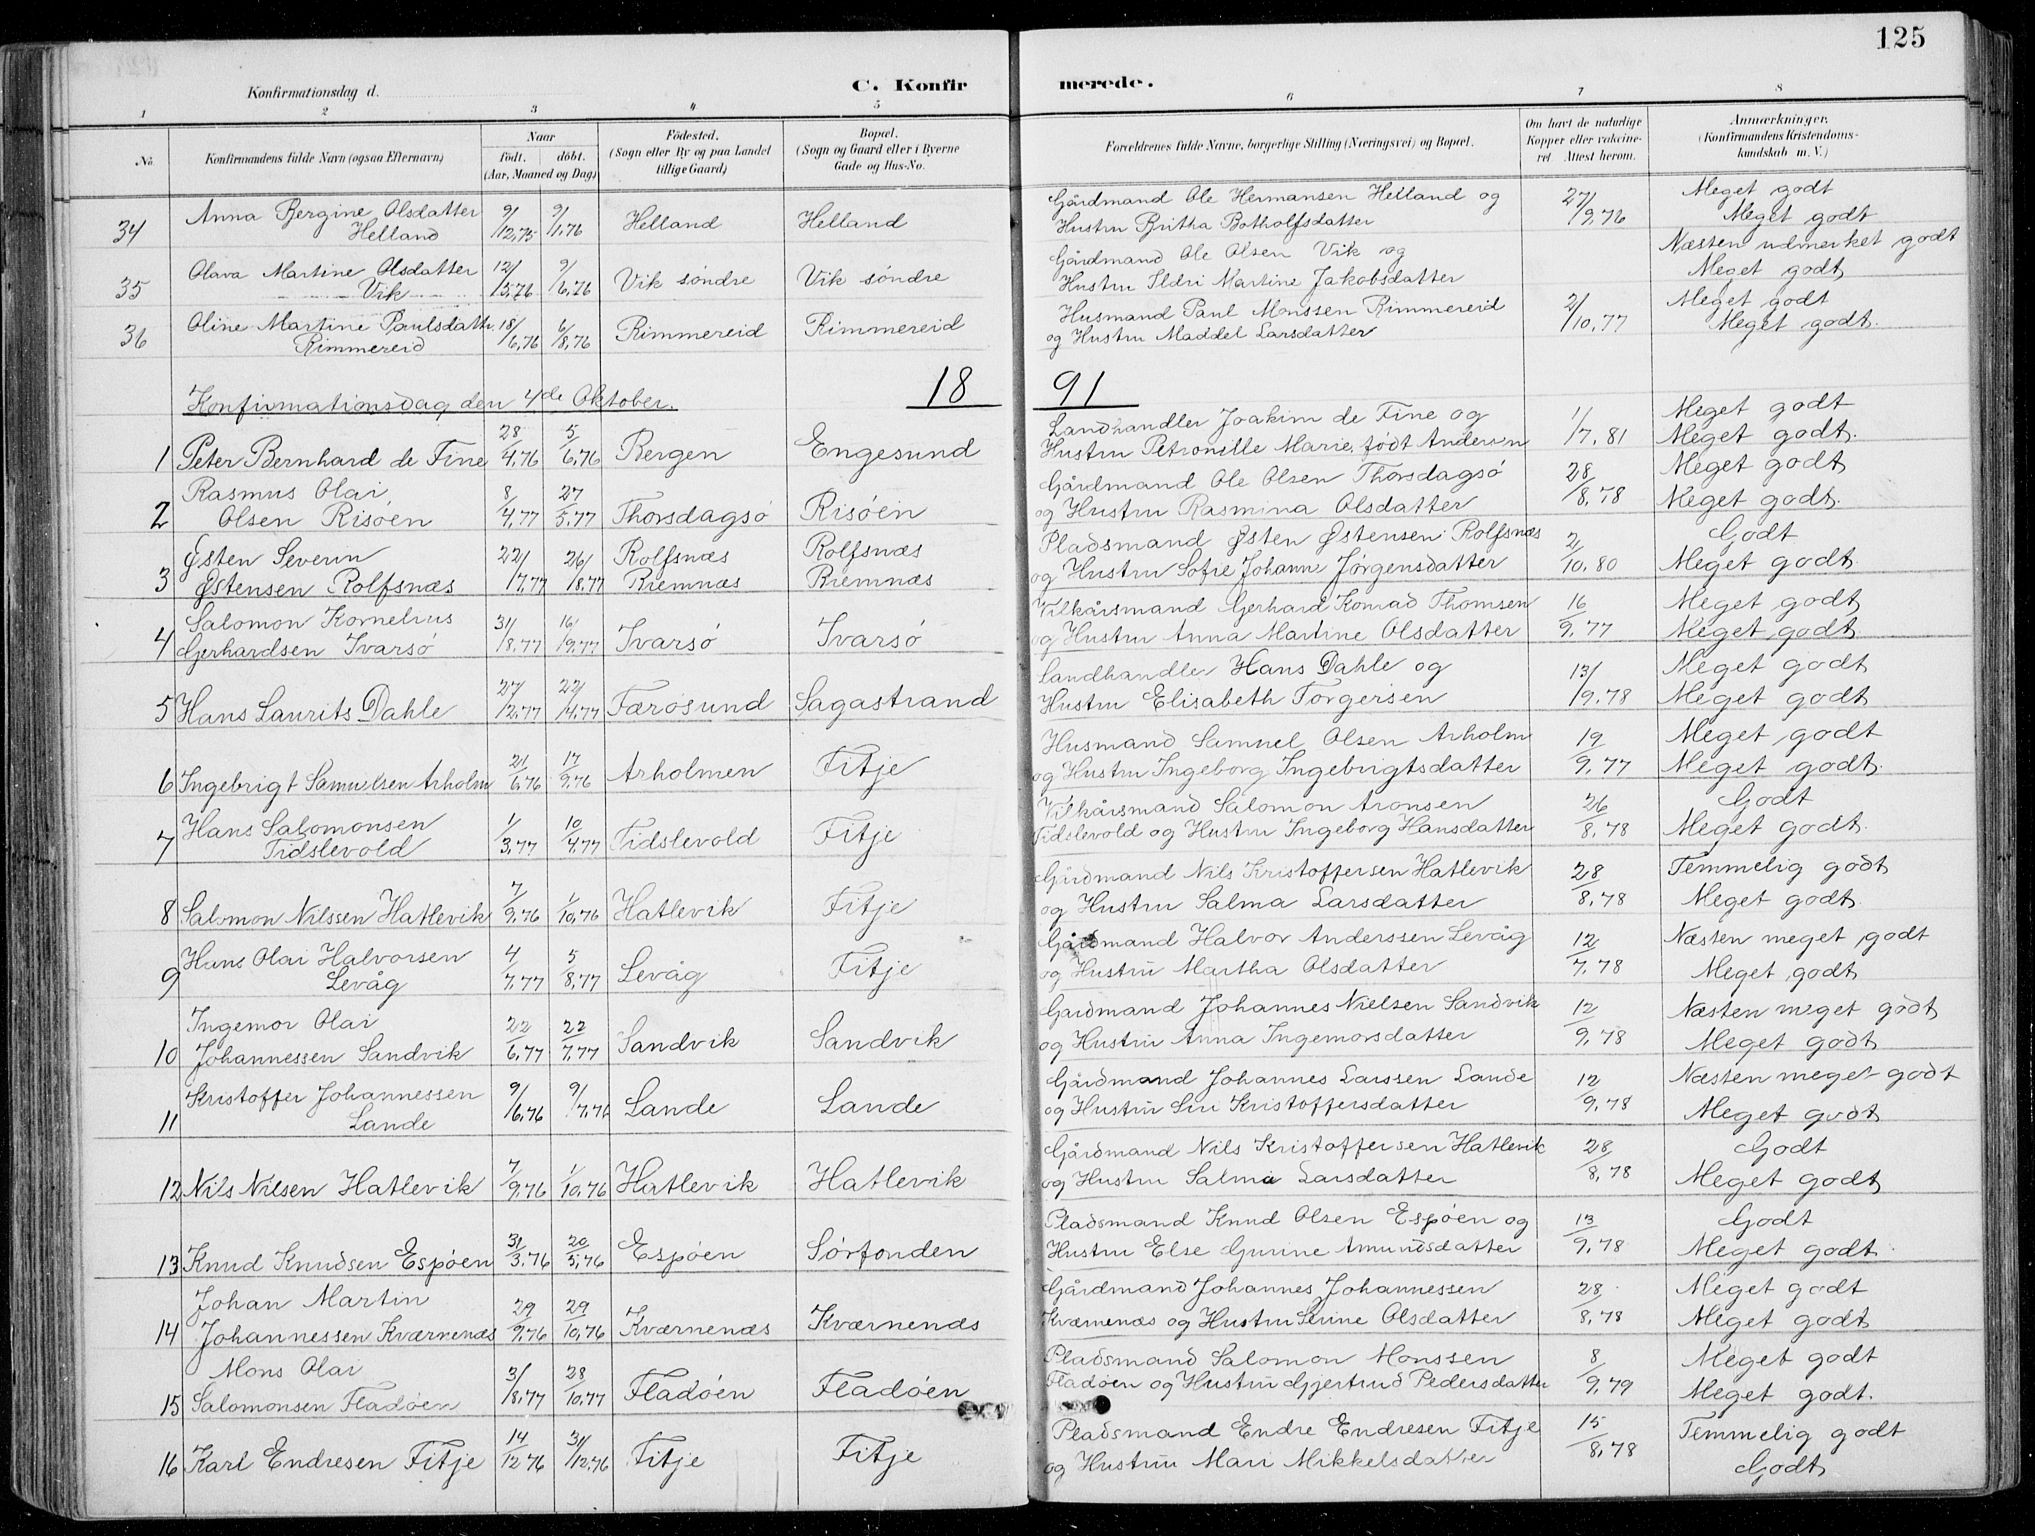 125
Konfirmationsdag d.
C. Konfirmerede.
1 2 3 4 5 6 7 8
No.
Konfirmandens fulde Navn (ogsaa Efternavn)
Naar
födt. döbt.
(Aar, Maaned og Dag)
Födested.
(Sogn eller By og paa Landet
tillige Gaard)
Bopæl.
(Sogn og Gaard eller i Byerne
Gade og Hus-No.
Forældrenes fulde Navne, borgerlige Stilling (Næringsvei) og Bopæl.
Om havt de naturlige
Kopper eller vakcine-
ret. Attest herom.
Anmærkninger.
(Konfirmandens Kristendoms-
kundskab m. V.)
34 Anna Bergine Olsdatter Helland 9/12,75 9/1,76 Helland Helland Gårdmand Ole Hermansen Helland og
Hustru Britha Botholfsdatter 27/9,76 Meget godt
Meget godt
35 Olava Martine Olsdatter Vik 12/5,76 9/6,76 Vik söndre Vik söndre Gårdmand Ole Olsen Vik og
Hustru Ildri Martine Jakobsdatter Næsten udmerket godt
Meget godt
36 Oline Martine Paulsdattr. Rimmereid 18/6,76 6/8,76 Rimmereid Rimmereid Husmand Paul Monssen Rimmereid
og Hustru Maddel Larsdatter 2/10,77 Meget godt
Meget godt.
Konfirmationsdag den 4de Oktober. 18 91
1 Peter Bernhard de Fine 28/4,76 5/6,76 Bergen Engesund Landhandler Joakim de Fine og
Hustru Petronille Marie, födt Andersen 1/7,81 Meget godt
Meget godt.
2 Rasmus Olai
Olsen Risöen 8/4,77 27/5,77 Thorsdagsö Risöen Gårdmand Ole Olsen Thorsdagsö
og Hustru Rasmina Olsdatter 28/8,78 Meget godt
Meget godt.
3 Østen Severin
Østensen Rolfsnæs 22/7,77 26/8,77 Rolfsnæs
Riemnæs Rolfsnæs
Riemnæs Pladsmand Østen Østensen Rolfsnæs
og Hustru Sofie Johanne Jörgensdatter 2/10,80 Godt
Meget godt.
4 Salomon Kornelius
Gerhardsen Ivarsö 31/8,77 16/9,77 Ivarsö Ivarsö Vilkårsmand Gerhard Konrad Thomsen
og Hustru Anna Martine Olsdatter 16/9,77 Meget godt
Meget godt
5 Hans Laurits Dahle 27/2,77 22/4,77 Færösund Sagastrand Landhandler Hans Dahle og
Hustru Elisabeth Torgersen 13/9,78 Meget godt
Meget godt
6 Ingebrigt Samuelsen Arholm 21/6,76 17/9,76 Arholmen Fitje Husmand Samuel Olsen Arholm
og Hustru Ingeborg Ingebrigtsdatter 19/9,77 Meget godt
Meget godt.
7 Hans Salomonsen
Tidslevold 1/3,77 10/4,77 Tidslevold Fitje Vilkårsmand Salomon Aronsen
Tidslevold og Hustru Ingeborg Hansdatter 26/8,78 Godt
Meget godt.
8 Salomon Nilssen Hatlevik 7/9,76 1/10,76 Hatlevik Fitje Gårdmand Nils Kristoffersen Hatlevik
og Hustru Salma Larsdatter 28/8,78 Temmelig godt
Meget godt.
9 Hans Olai Halvorsen
Levåg 4/7,77 5/8,77 Levåg Fitje Gårdmand Halvor Anderssen Levåg
og Hustru Martha Olsdatter 12/7,78 Næsten meget godt
Meget godt
10 Ingemor Olai
Johannessen Sandvik 22/6,77 22/7,77 Sandvik Sandvik Gårdmand Johannes Nielsen Sandvik
og Hustru Anna Ingemorsdatter 12/9,78 Næsten meget godt
Meget godt
11 Kristoffer Johannessen
Lande 9/6,76 9/7,76 Lande Lande Gårdmand Johannes Larssen Lande
og Hustru Siri Kristoffersdatter 12/9,78 Næsten meget godt
Meget godt
12 Nils Nilsen Hatlevik 7/9,76 1/10,76 Hatlevik Hatlevik Gårdmand Nils Kristoffersen Hatlevik
og Hustru Salma Larsdatter 28/8,78 Godt
Meget godt
13 Knud Knudsen Espöen 31/3,76 20/5,76 Espöen Sörfonden Pladsmand Knud Olsen Espöen og
Hustru Else Gurine Amundsdatter 13/9,78 Godt
Meget godt.
14 Johan Martin
Johannessen Kværnenæs 29/9,76 29/10,76 Kværnenæs Kværnenæs Gårdmand Johannes Johannessen
Kværnenæs og Hustru Serine Olsdatter 28/8,78 Meget godt
Meget godt
15 Mons Olai
Salomonsen Fladöen 31/8,77 28/10,77 Fladöen Fladöen Pladsmand Salomon Monssen
Fladöen og Hustru Gjertrud Pedersdatter 8/9,79 Meget godt
Meget godt.
16 Karl Endresen Fitje 14/12,76 31/12,76 Fitje Fitje Pladsmand Endre Endresen Fitje
og Hustru Mari Mikkelsdatter 15/8,78 Temmelig godt
Godt